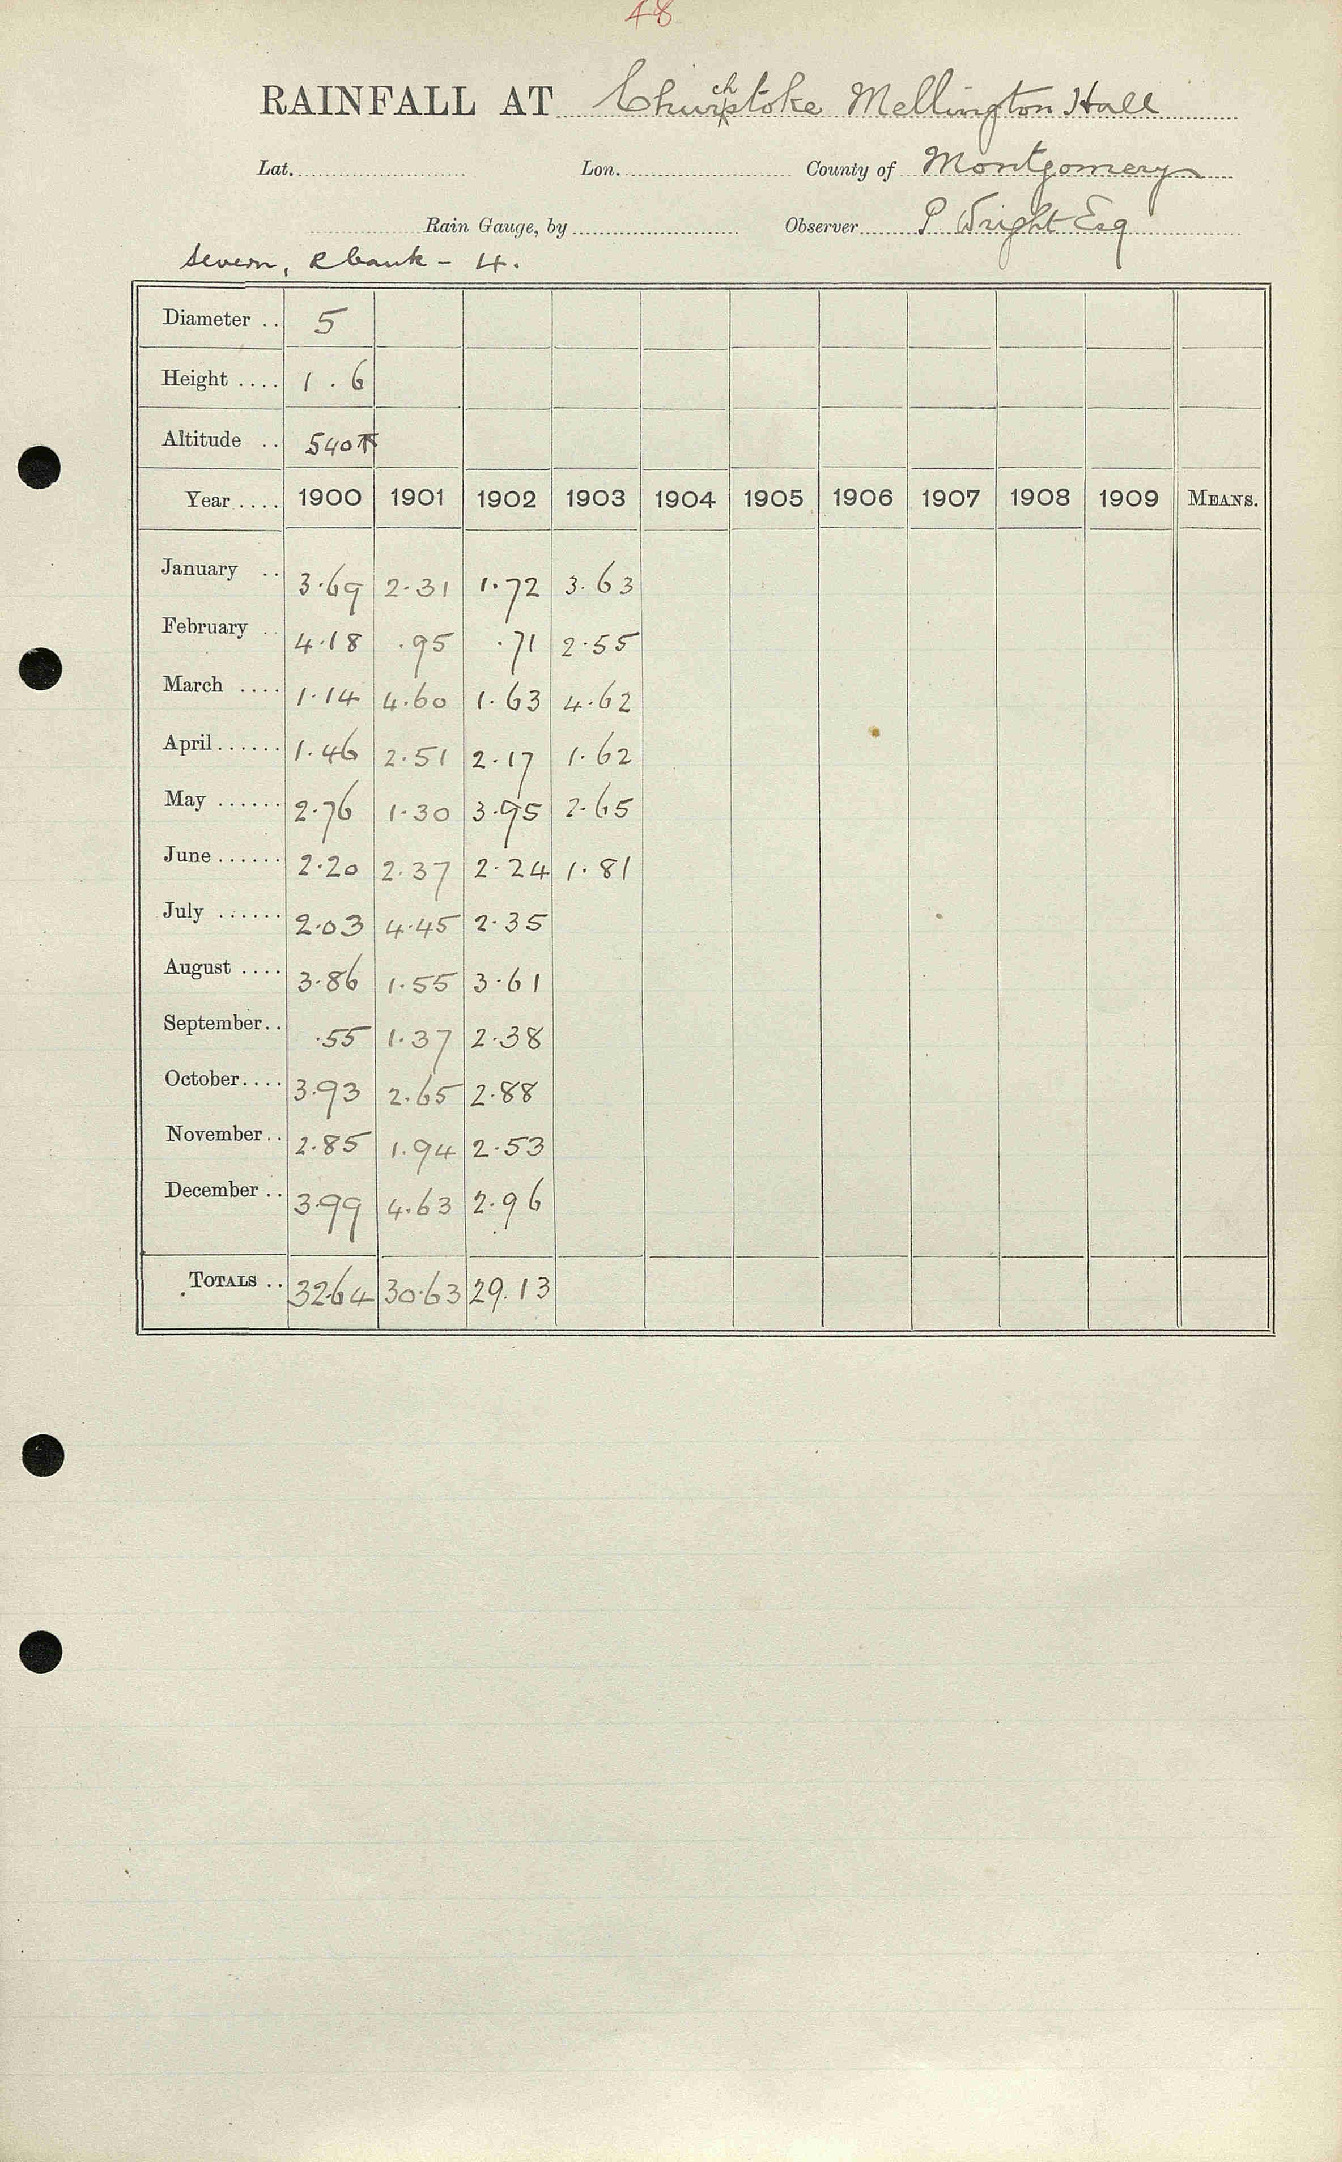 48
RAINFALL AT Churchstoke Mellington Hall
Lat. Lon. County of Montgomery
Rain Gauge, by Observer P Wright Esq
Severn, R bank - 4.
Diameter .. 5
Height .... 1 . 6
Altitude .. 540 ft
Year .... 1900 1901 1902 1903 1904 1905 1906 1907 1908 1909 MEANS.
January .. 3.69 2.31 1.72 3.63
February .. 4.18 .95 .71 2.55
March .... 1.14 4.60 1.63 4.62
April...... 1.46 2.51 2.17 1.62
May ...... 2.76 1.30 3.95 2.65
June...... 2.20 2.37 2.24 1.81
July ...... 2.03 4.45 2.35
August .... 3.86 1.55 3.61
September.. .55 1.37 2.38
October.... 3.93 2.65 2.88
November.. 2.85 1.94 2.53
December .. 3.99 4.63 2.96
TOTALS .. 32.64 30.63 29.13